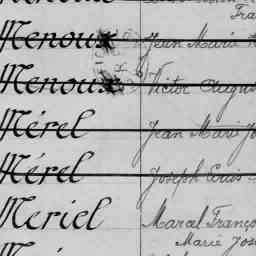 Fra
Menoux Jean Marie
Menoux Victor Augus
Mérel Jean Marie Jo
Mérel Joseph
Meriel Marcel Franço
Marie Jose